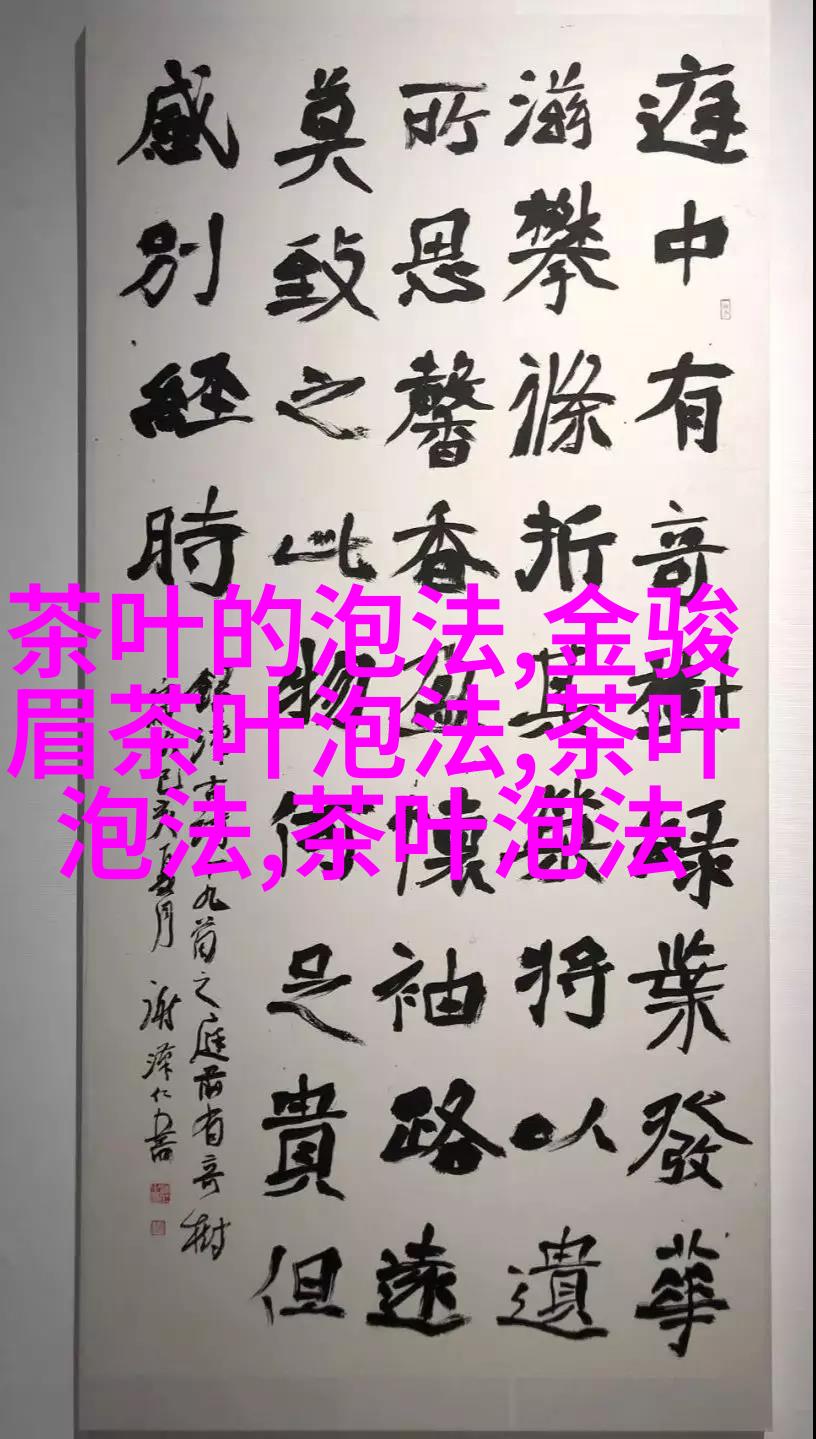 庭中有奇樹綠葉發華
滋攀條折其榮將以遺
所思馨香盈懷袖路遠
莫致之此物何足貴但
感別經時
九首之庭前有奇樹
己亥夏月
茶叶的泡法,金骏
眉茶叶泡法,茶叶
泡法,茶叶泡法